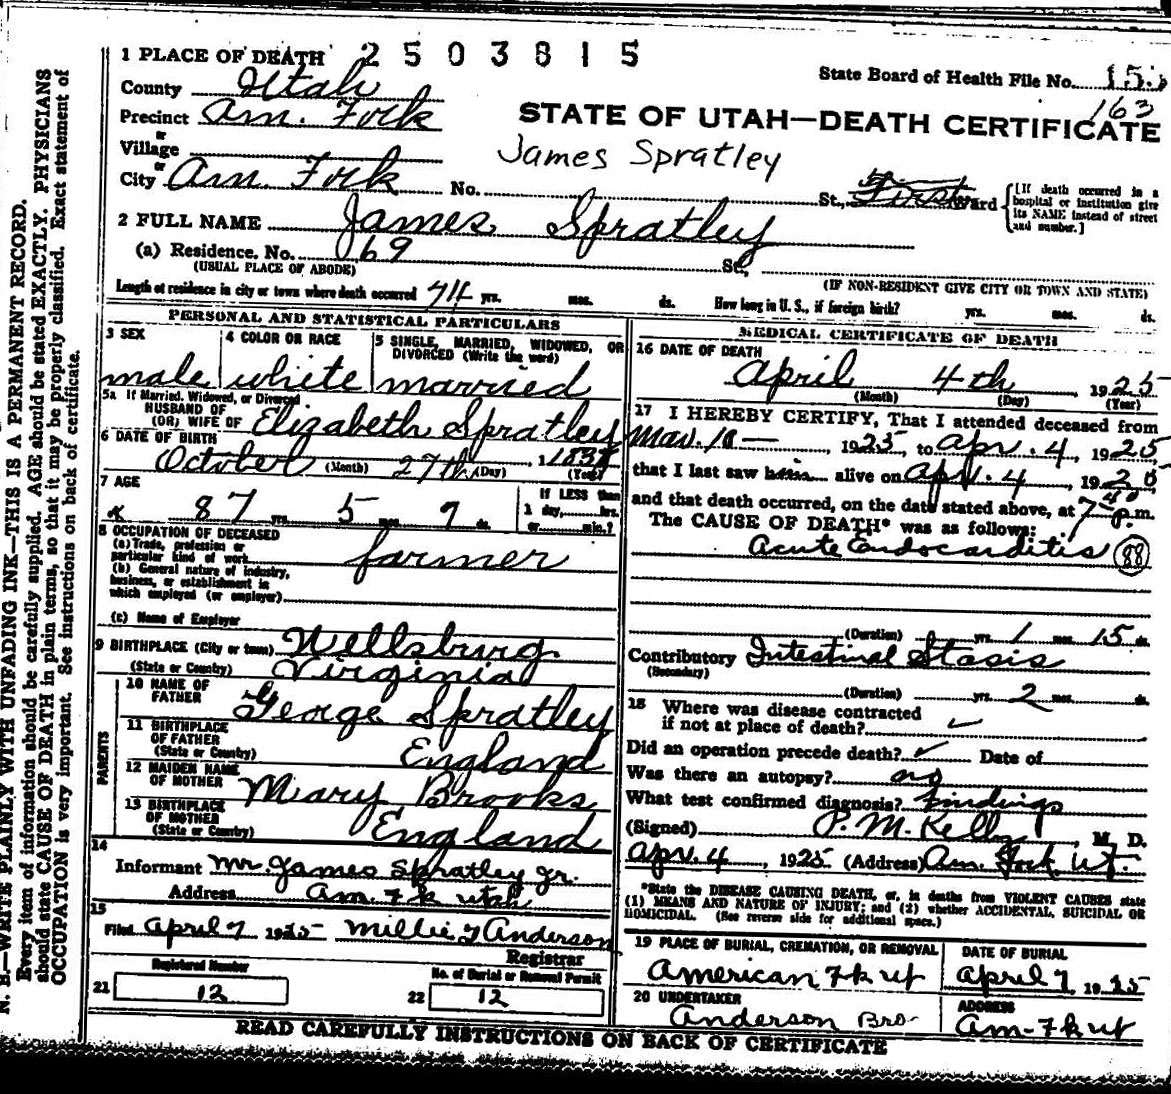 N. B.—WRITE PLAINLY WITH UNFADING INK—THIS IS A PERMANENT RECORD.
Every item of information should be carefully supplied. AGE should be stated EXACTLY. PHYSICIANS
should state CAUSE OF DEATH in plain terms, so that it may be properly classified. Exact statement of
OCCUPATION is very important. See instructions on back of certificate.
1 PLACE OF DEATH 2503815
State Board of Health File No.
163
County Utah
Precinct Am. Fork
or
Village
or
City Am Fork No. St., First Ward
[If death occurred in a hospital or institution give its NAME instead of street and number.]
STATE OF UTAH—DEATH CERTIFICATE
James Spratley
2 FULL NAME James Spratley
(a) Residence. No. 69 St.,
(USUAL PLACE OF ABODE) (IF NON-RESIDENT GIVE CITY OR TOWN AND STATE)
Length of residence in city or town where death occurred 74 yrs. mos. ds. How long in U. S., if foreign birth? yrs. mos. ds.
PERSONAL AND STATISTICAL PARTICULARS
3 SEX 4 COLOR OR RACE 5 SINGLE, MARRIED, WIDOWED, OR DIVORCED (Write the word)
male white married
5a If Married, Widowed, or Divorced
HUSBAND OF
(OR) WIFE OF Elizabeth Spratley
6 DATE OF BIRTH
October (Month) 27th (Day) 1837 (Year)
7 AGE
87 yrs. 5 mos. 7 ds.
If LESS than
1 day, hrs.
or min.?
8 OCCUPATION OF DECEASED
(a) Trade, profession or
particular kind of work farmer
(b) General nature of industry,
business, or establishment in
which employed (or employer)
(c) Name of Employer
9 BIRTHPLACE (City or town) Wellsburg
(State or Country) Virginia
PARENTS
10 NAME OF
FATHER George Spratley
11 BIRTHPLACE
OF FATHER
(State or Country) England
12 MAIDEN NAME
OF MOTHER Mary Brooks
13 BIRTHPLACE
OF MOTHER
(State or Country) England
14
Informant Mr James Spratley Jr.
Address Am. Fk Utah
15
Filed April 7 1925 Millie Anderson
Registrar
Registered Number
21 12
No. of Burial or Removal Permit
22 12
MEDICAL CERTIFICATE OF DEATH
16 DATE OF DEATH
April 4th, 1925
(Month) (Day) (Year)
17 I HEREBY CERTIFY, That I attended deceased from
Mar. 10—, 1925 to Apr. 4, 1925
that I last saw him alive on Apr. 4, 192
and that death occurred, on the date stated above, at 7 40 p.m.
The CAUSE OF DEATH* was as follows:
Acute Endocarditis 88
(Duration) yrs. 1 mos. 15 ds.
Contributory Intestinal Stasis
(Secondary)
(Duration) yrs. 2 mos. ds.
18 Where was disease contracted
if not at place of death? ✓
Did an operation precede death? ✓ Date of
Was there an autopsy? no
What test confirmed diagnosis? Findings
(Signed) P. M. Kelly, M. D.
Apr. 4, 1925 (Address) Am. Fork Ut.
*State the DISEASE CAUSING DEATH, or, in deaths from VIOLENT CAUSES state
(1) MEANS AND NATURE OF INJURY; and (2) whether ACCIDENTAL, SUICIDAL OR
HOMICIDAL. (See reverse side for additional space.)
19 PLACE OF BURIAL, CREMATION, OR REMOVAL DATE OF BURIAL
American Fk Ut April 7 1925
20 UNDERTAKER ADDRESS
Anderson Bro Am-Fk Ut
READ CAREFULLY INSTRUCTIONS ON BACK OF CERTIFICATE